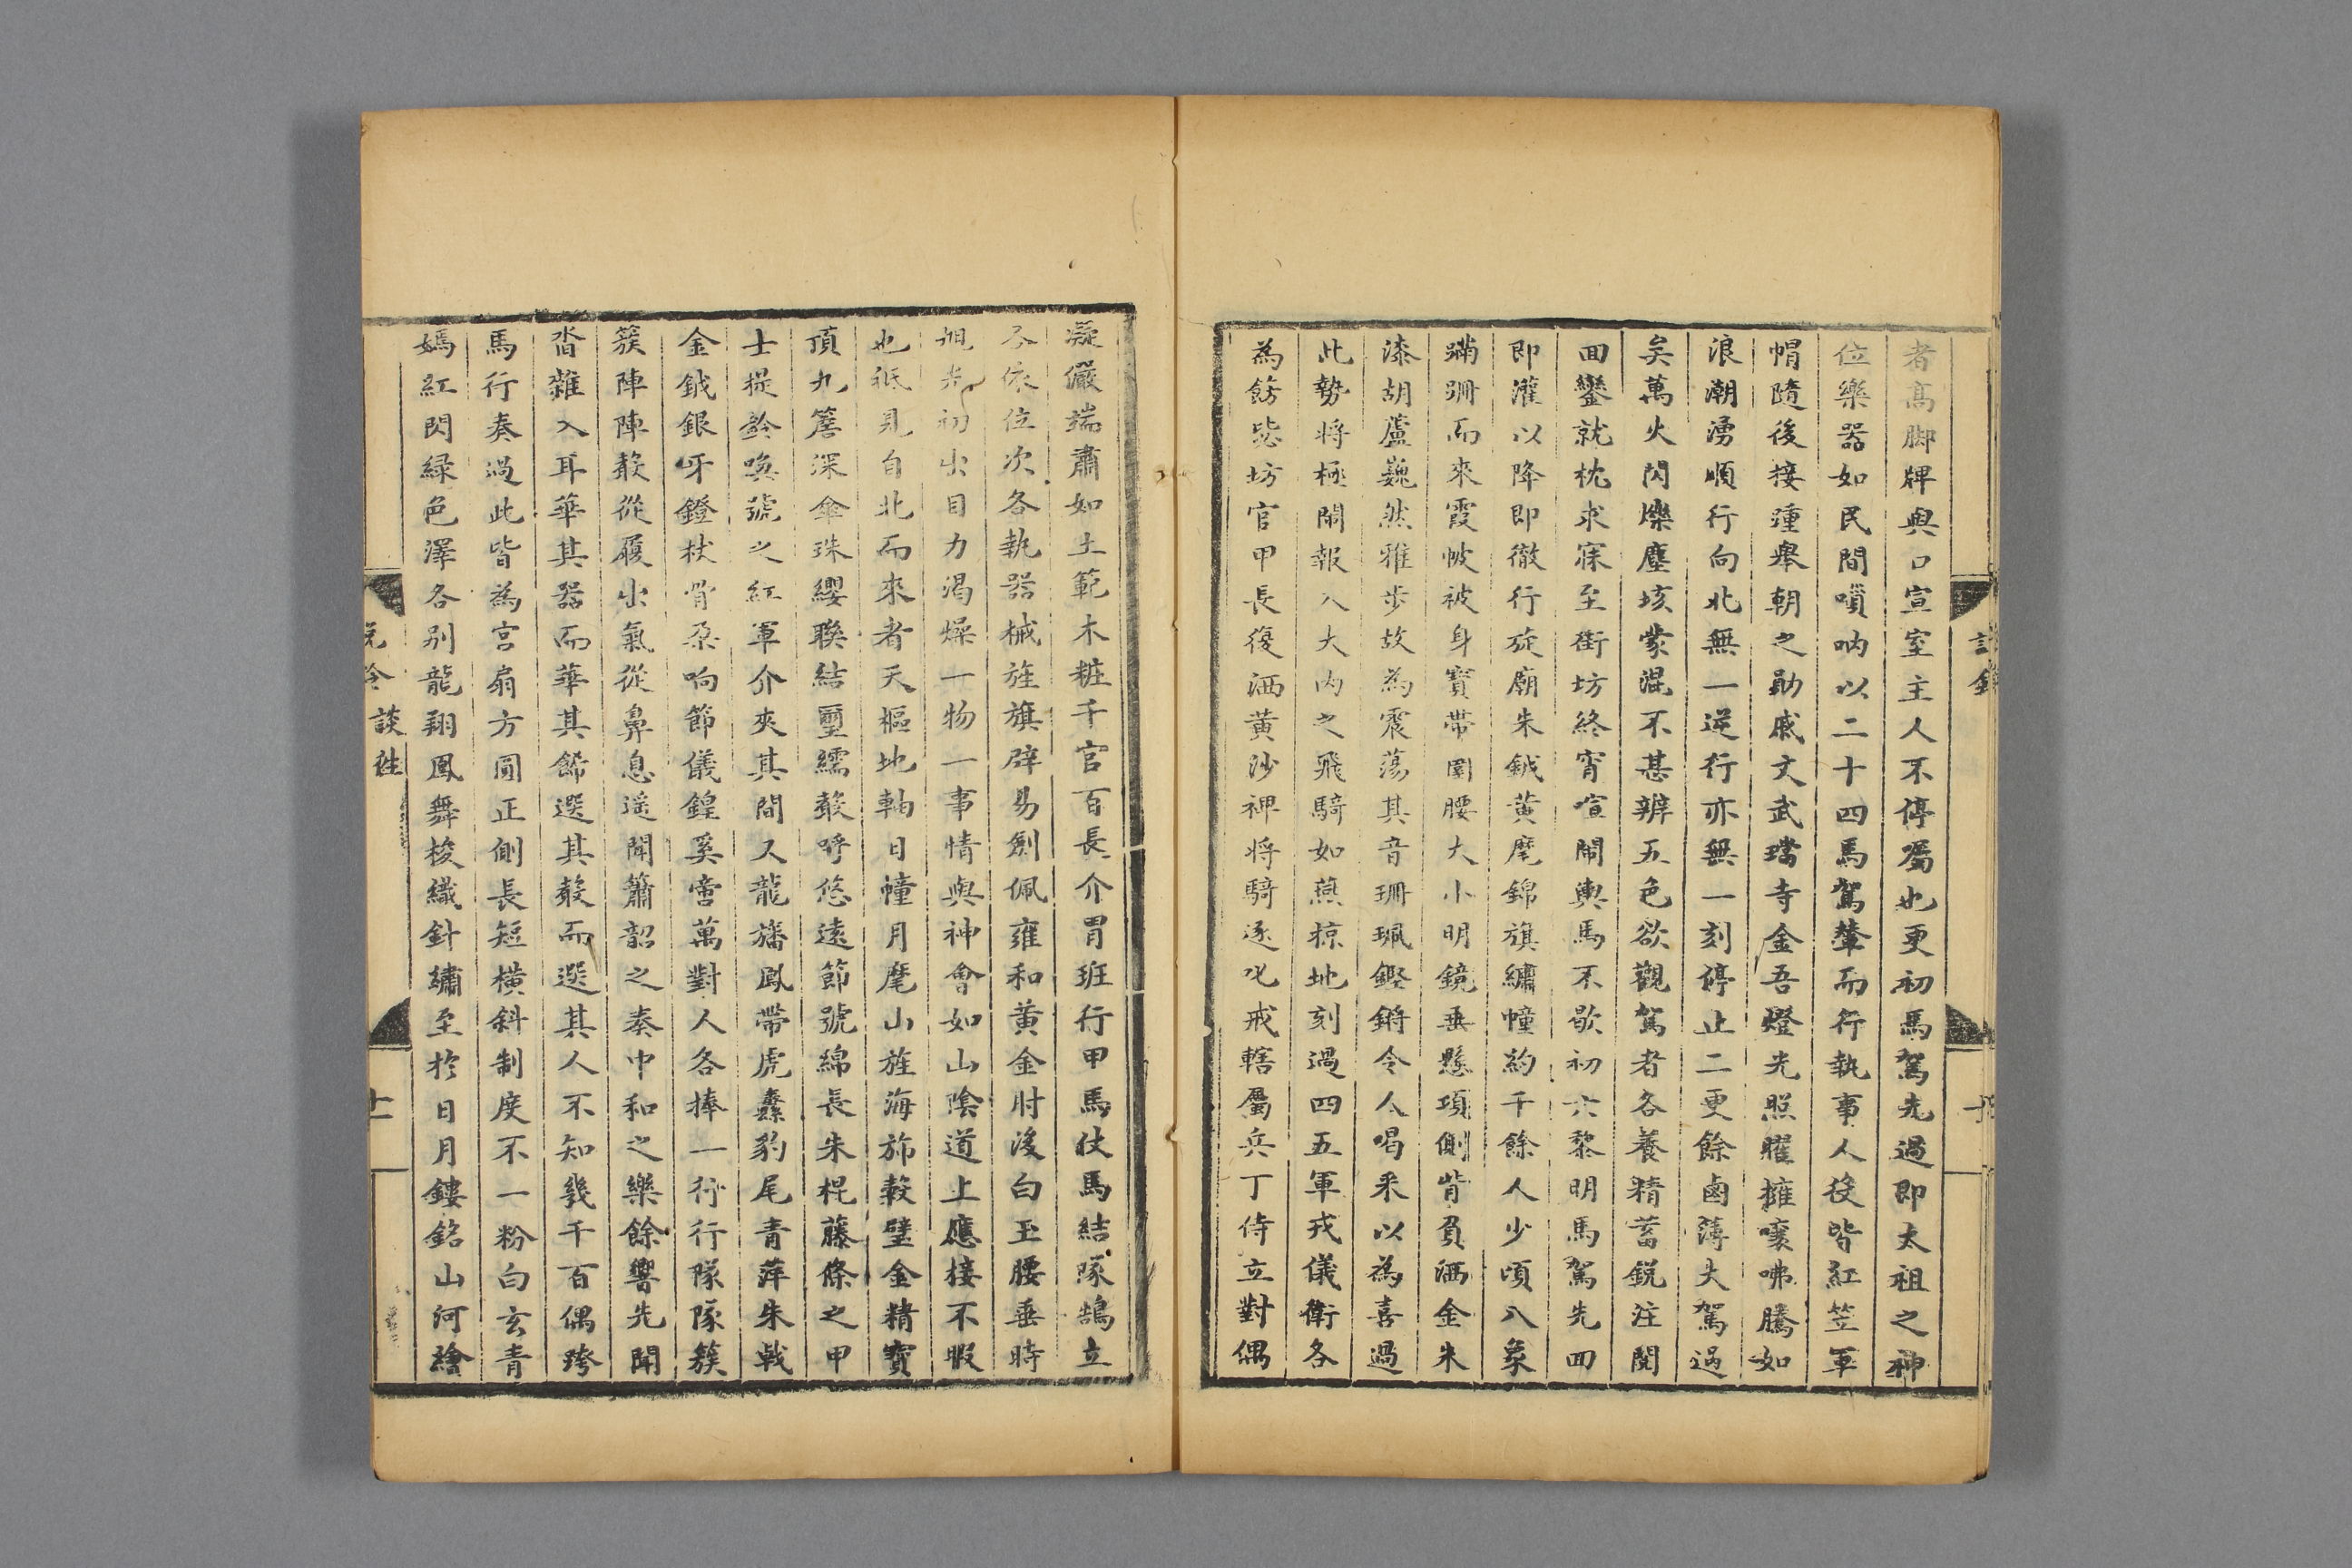 者髙脚牌與口宣室主人不停嘱也更初馬駕先過即太祖之神
位樂器如民間嗩吶以二十四馬駕輦而行執事人役皆紅笠軍
帽隨後接踵舉朝之勛戚文武璫寺金吾燈光照耀擁嚷咈騰如
浪潮湧順行向北無一逆行亦無一刻停止二更餘鹵薄大駕過
矣萬火閃爍塵垓蒙混不甚辨五色欲觀駕者各養精蓄鋭注閱
回鑾就枕求寐至街坊終宵喧閙輿馬不歇初六黎明馬駕先回
即灌以降即徹行旋廟朱鉞黄麾錦旗繡幢約千餘人少頃八象
蹣跚而來霞帔被身寳帶圍腰大小明鏡垂懸項側背負洒金朱
漆胡盧巍然雅步故為震蕩其音珊珮鏗鏘令人喝采以為喜過
此勢将極閙報入大内之飛騎如燕掠地刻過四五軍戎儀衛各
為飭毖坊官甲長復洒黄沙裨将騎逐叱戒轄屬兵丁侍立對偶
凝儼端肅如土範木粧千官百長介冑班行甲馬仗馬結隊鵠立
各依位次各執器械旌旗辟易劍佩雍和黄金肘後白玉腰垂時
旭光初出目力渴燥一物一事情與神會如山陰道上應接不暇
也祇見自北而來者天樞地軸日幢月麾山旌海斾轂璧金精寳
頂九簷深傘珠纓聯結璽繻縠呼悠遠節號綿長朱棍藤條之甲
士提鈴喚號之紅軍介夾其間又龍旛鳳帶虎纛豹尾青萍朱戟
金鉞銀牙鐙杖骨朶响節儀鍠奚啻萬對人各捧一行行隊隊簇
簇陣陣縠從履出氣從鼻息遥聞簫韶之奏中和之樂餘響先聞
沓雜入耳華其器而華其餙選其縠而選其人不知幾千百偶跨
馬行奏過此皆為宫扇方圓正側長短横斜制度不一粉白玄青
嫣紅閃緑色澤各别龍翔鳳舞梭織針繡至於日月鏤銘山河繪
談往
十一